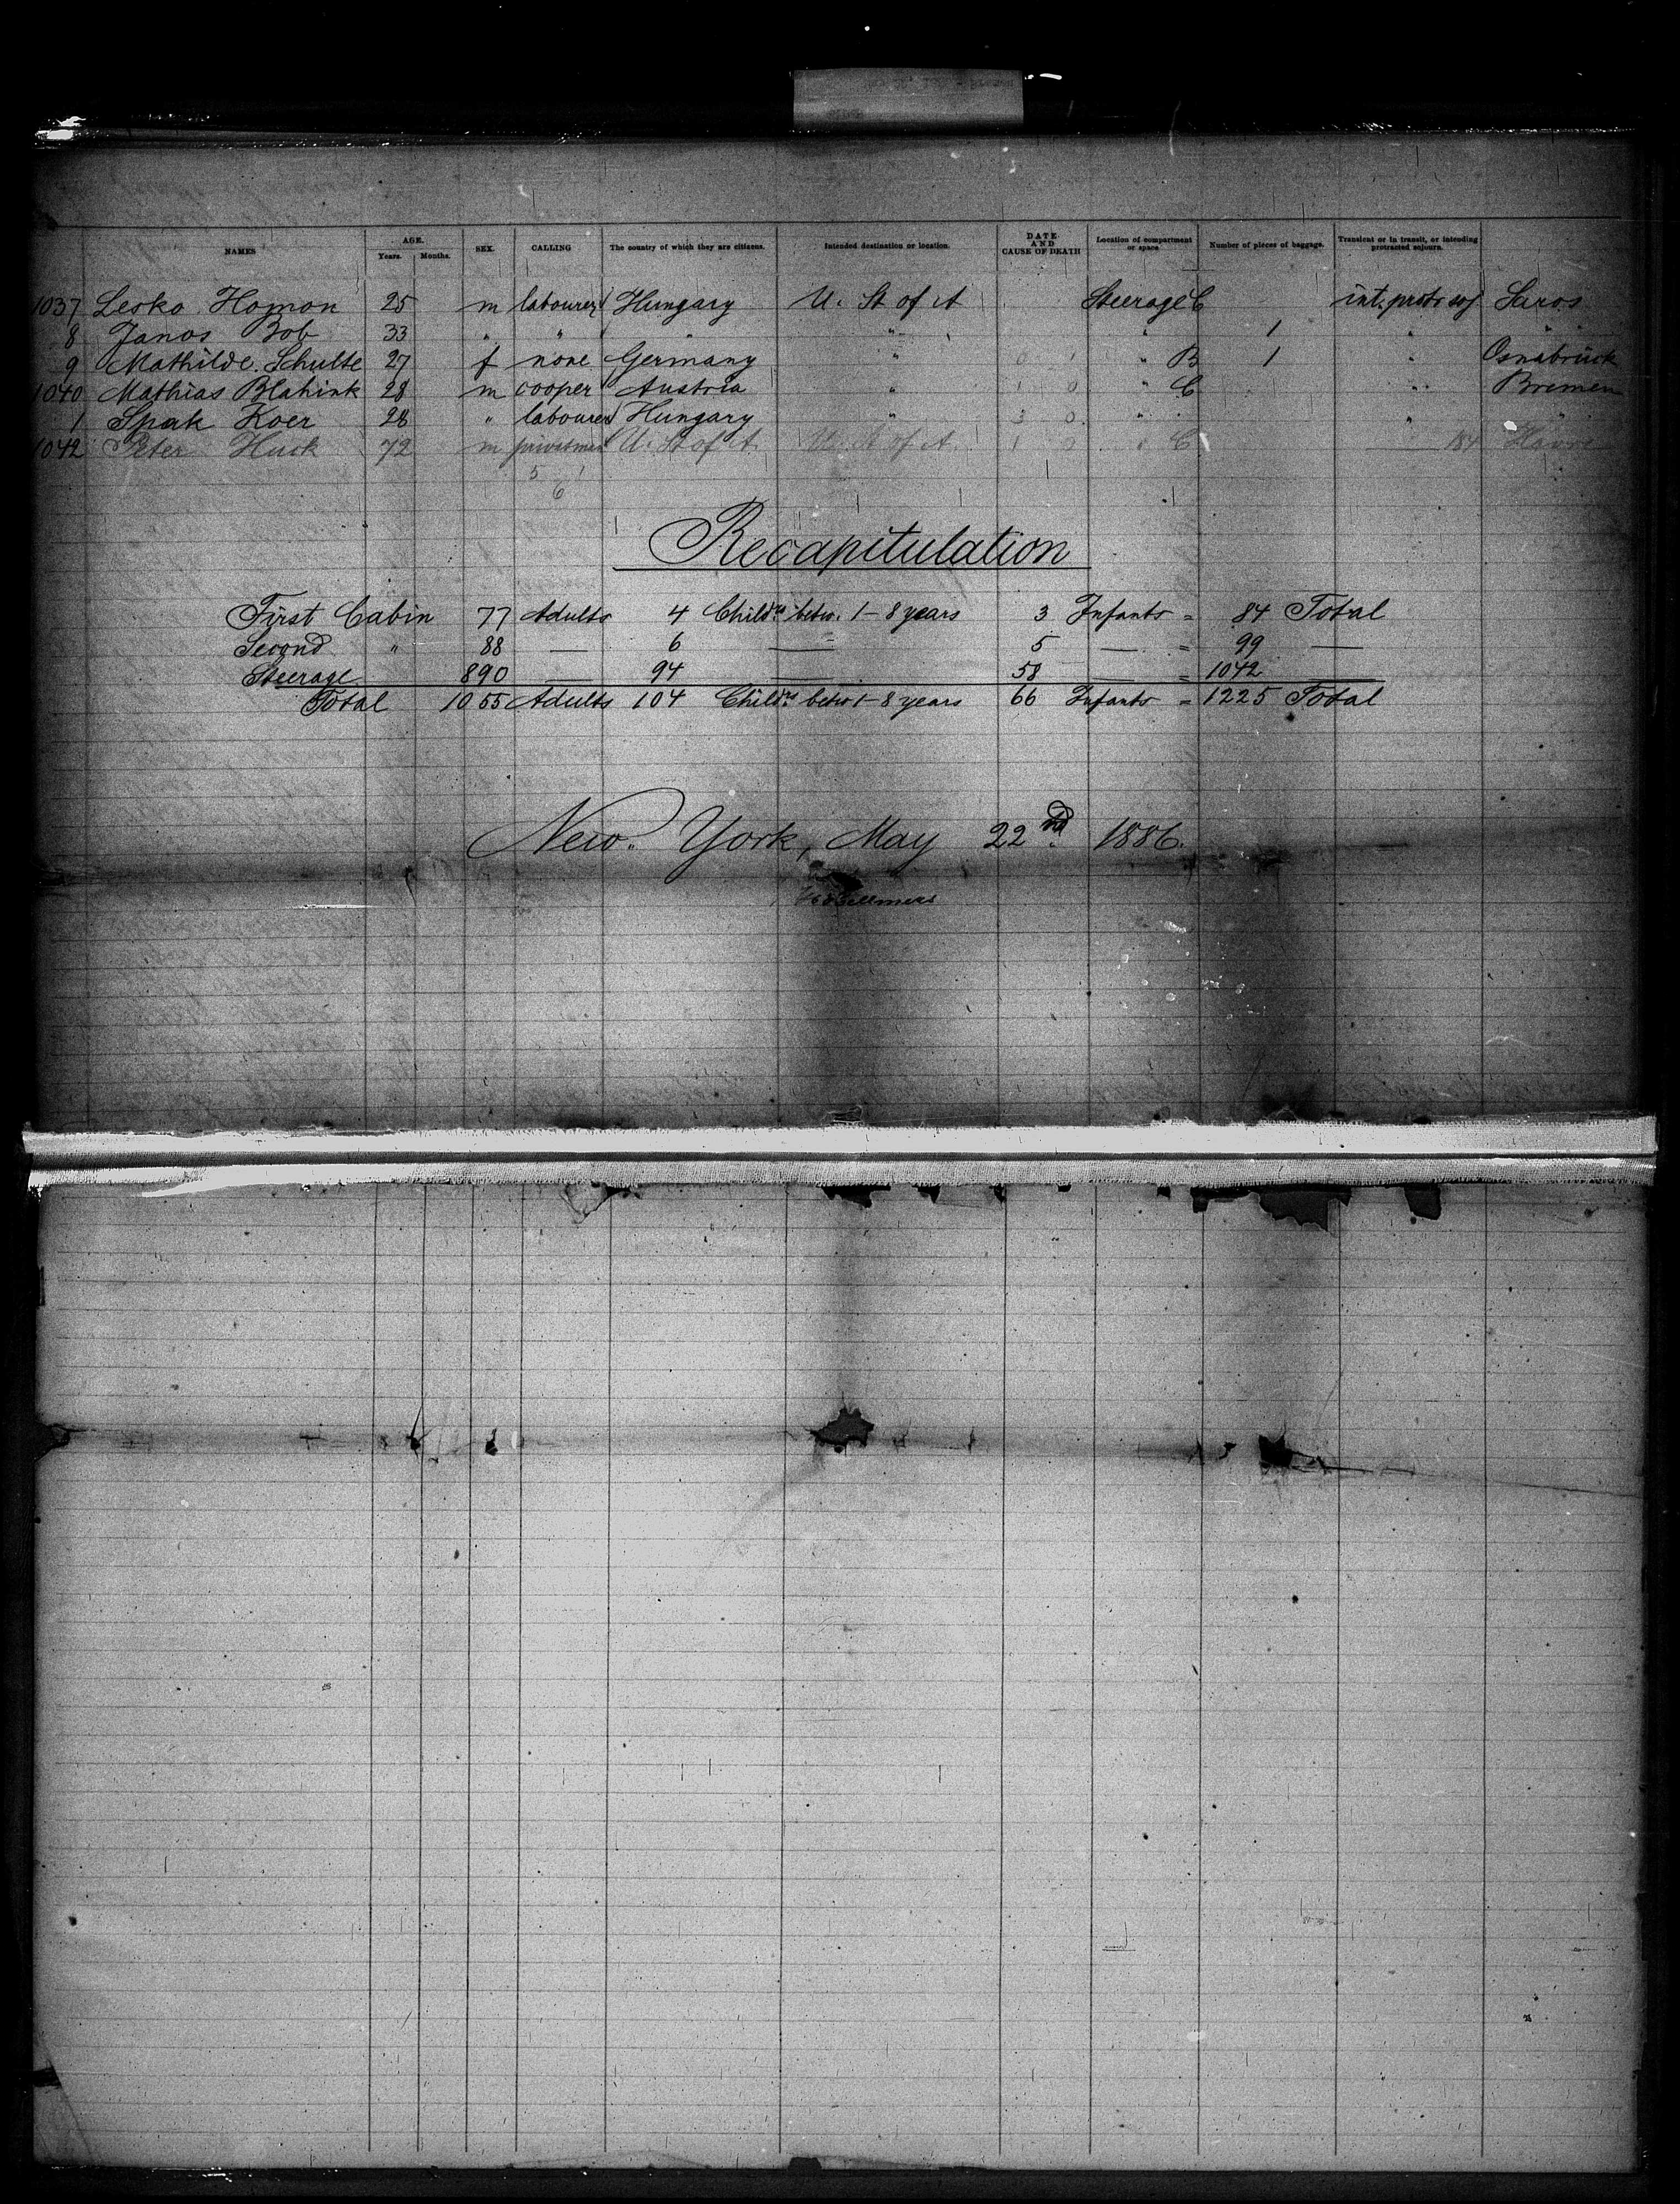 NAMES AGE. Years. Months. SEX. CALLING The country of which they are citizens. Intended destination or location. DATE AND CAUSE OF DEATH Location of compartment or space Number of pieces of baggage. Transient or in transit, or intending protracted sojourn.
1037 Lesko Homon 25 m labourer Hungary U. St of A Steerage C int. protr soj Saros
8 Janos Bob 33 " " " " " 1 " "
9 Mathilde Schulte 27 f none Germany " " B 1 " Osnabrück
1040 Mathias Blahink 28 m cooper Austria " " C " Bremen
1 Spak Koer 28 " labourer Hungary " " " "
1042 Peter Huck 72 m privatman U. St of A. U. St of A " C Havre
5 1
6
Recapitulation
First Cabin 77 Adults 4 Childrn betw. 1-8 years 3 Infants = 84 Total
Second " 88 — 6 — 5 — = 99 —
Steerage 890 — 94 — 58 — = 1042
Total 1055 Adults 104 Childrn betw 1-8 years 66 Infants = 1225 Total
New York, May 22nd 1886.